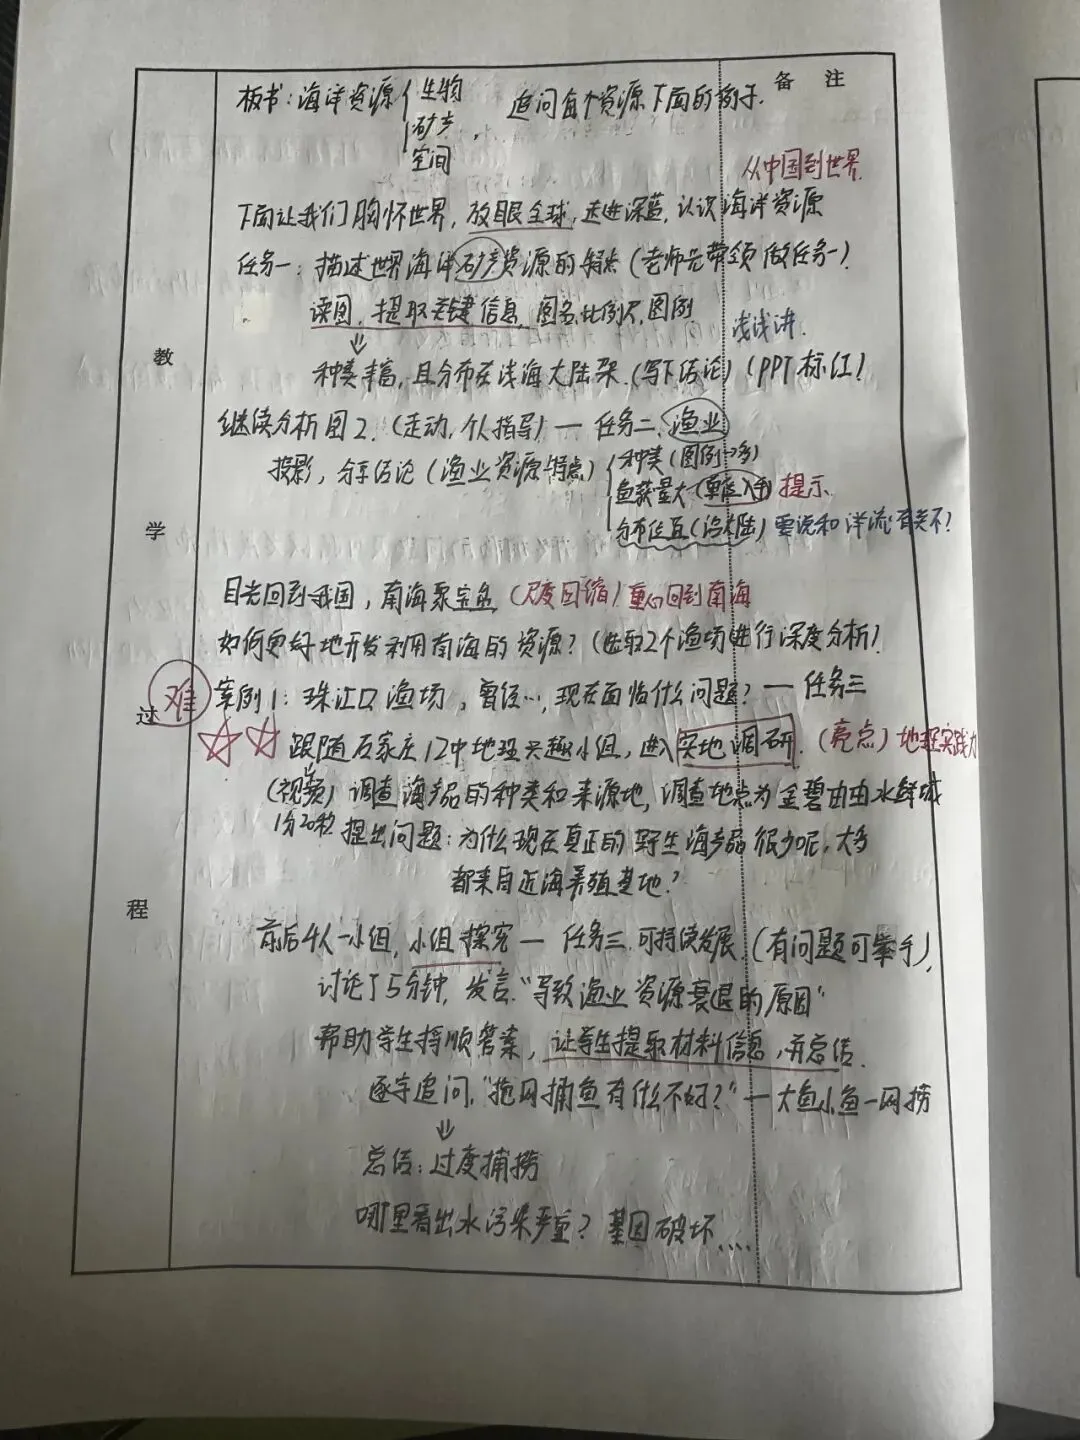 备 注
板书:海洋资源{生物
矿产
空间
追问每个资源下面的例子.
从中国到世界
下面让我们胸怀世界,放眼全球,走进深蓝,认识海洋资源
任务一:描述世界海洋矿产资源的特点(老师先带领做任务一)
读图,提取关键信息,图名,比例尺,图例
浅浅讲.
⇓
种类丰富,且分布在浅海大陆架.(写下结论)(PPT标红)
教
继续分析图2.(走动,个人指导)— 任务二.渔业
投影,分享结论(渔业资源特点)
种类(图例→多)
鱼获量大(单位入手)提示.
分布位置(沿大陆)要说和洋流有关不?
学
目光回到我国,南海聚宝盆(尺度回缩)重心回到南海
如何更好地开发利用南海的资源?(选取2个渔场进行深度分析)
难 案例1:珠江口渔场,曾经…,现在面临什么问题?— 任务三
过
☆☆ 跟随石家庄12中地理兴趣小组,进入实地调研.(亮点)地理实践力
(视频)调查海产品的种类和来源地,调查地点为金碧由由水鲜城
1分20秒 提出问题:为什么现在真正的野生海产品很少呢,大多
都来自近海养殖基地?
程
前后4人一小组,小组探究 — 任务三.可持续发展.(有问题可举手),
讨论了5分钟,发言."导致渔业资源衰退的原因"
帮助学生捋顺答案,让学生提取材料信息,并总结.
逐字追问,"拖网捕鱼有什么不好?"— 大鱼小鱼一网捞
⇓
总结:过度捕捞
哪里看出水污染严重?基因破坏....